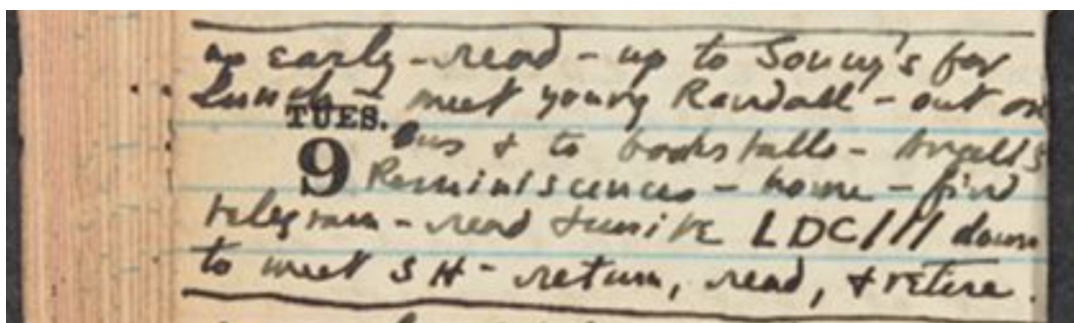 up early - read - up to Sonny's for
Lunch - meet young Randall - out on
TUES.
bus & to bookstalls - Angell's
9 Reminiscences - home - find
telegram - read & write LDC/// down
to meet SH - return, read, & retire.